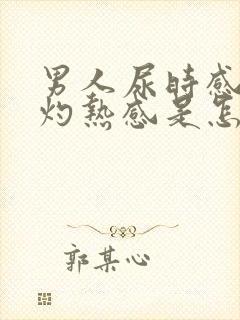 男人尿时感
灼热感是怎
郭某心